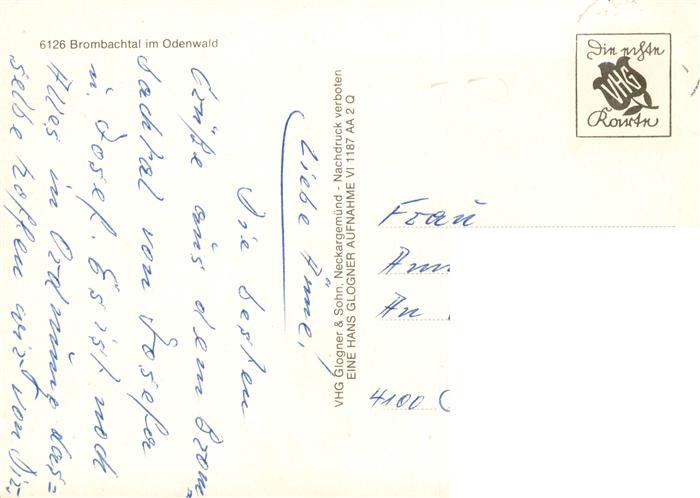 6126 Brombachtal im Odenwald
Liebe Änne,
Die besten
Grüße aus dem Brom=
bachtal von Josefa
u. Josef. Es ist noch
Alles in Ordnung das=
selbe hoffen wir von Dir
VHG Glogner & Sohn, Neckargemünd - Nachdruck verboten
EINE HANS GLOGNER AUFNAHME VI 1187 AA 2 Q
Die echte
VHG
Karte
Frau
An
4100